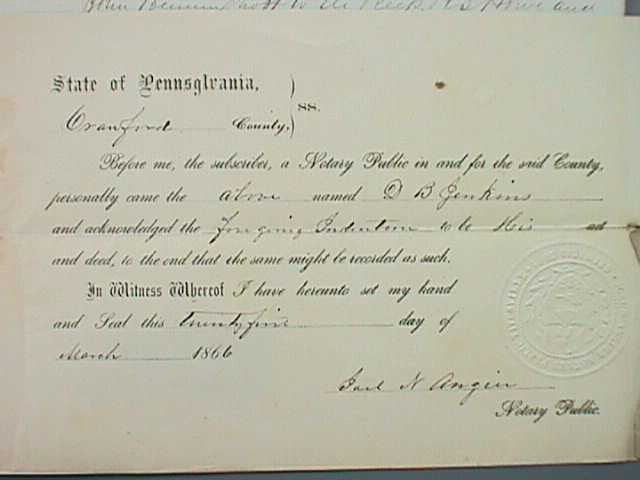 State of Pennsylvania,
Crawford County, } ss.
Before me, the subscriber, a Notary Public in and for the said County,
personally came the above named D B Jenkins
and acknowledged the foregoing Indenture to be His act
and deed, to the end that the same might be recorded as such.
In Witness Whereof I have hereunto set my hand
and Seal this twenty five day of
March 1866
N Angier
Notary Public.